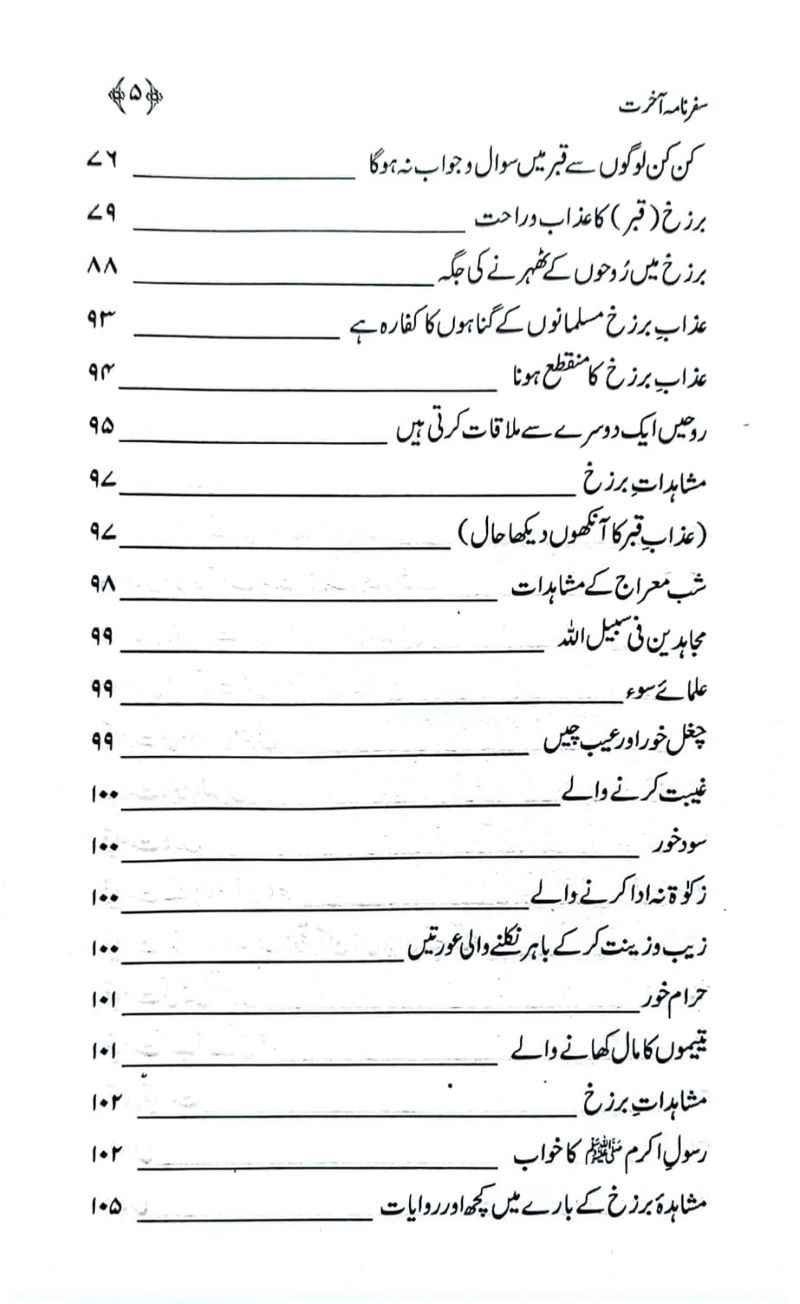 سفرنامہ آخرت ﴿۵﴾
کن کن لوگوں سے قبر میں سوال و جواب نہ ہوگا ۷۶
برزخ (قبر) کا عذاب و راحت ۷۹
برزخ میں رُوحوں کے ٹھہرنے کی جگہ ۸۸
عذابِ برزخ مسلمانوں کے گناہوں کا کفارہ ہے ۹۳
عذابِ برزخ کا منقطع ہونا ۹۴
روحیں ایک دوسرے سے ملاقات کرتی ہیں ۹۵
مشاہداتِ برزخ ۹۷
(عذابِ قبر کا آنکھوں دیکھا حال) ۹۷
شب معراج کے مشاہدات ۹۸
مجاہدین فی سبیل اللہ ۹۹
علمائے سوء ۹۹
چغل خور اور عیب چیں ۹۹
غیبت کرنے والے ۱۰۰
سود خور ۱۰۰
زکوٰۃ نہ ادا کرنے والے ۱۰۰
زیب و زینت کر کے باہر نکلنے والی عورتیں ۱۰۰
حرام خور ۱۰۱
یتیموں کا مال کھانے والے ۱۰۱
مشاہداتِ برزخ ۱۰۲
رسولِ اکرم ﷺ کا خواب ۱۰۲
مشاہدۂ برزخ کے بارے میں کچھ اور روایات ۱۰۵